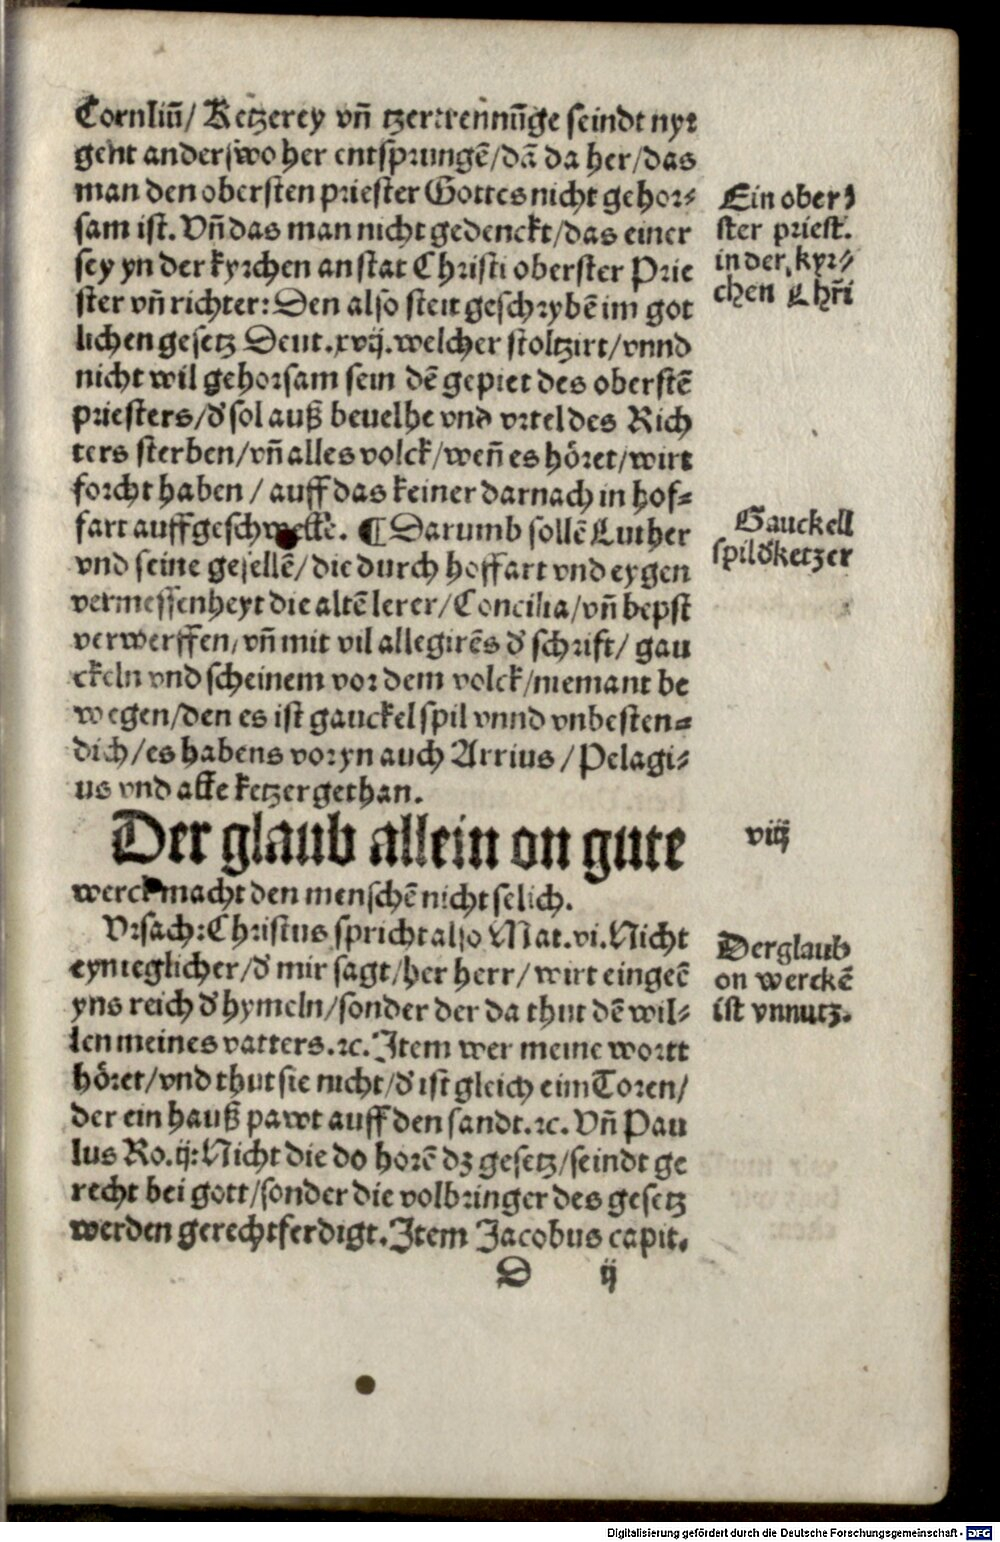 Cornliū/ Ketzerey vñ tzertrennūge seindt nyr
gent anderswo her entsprungē/dā da her/das
man den obersten priester Gottes nicht gehor⸗
sam ist. Vñ das man nicht gedenckt/das einer
sey yn der kyrchen an stat Christi oberster Prie
ster vñ richter: Den also steit geschrybē im got
lichen gesetz Deut.xvij.welcher stoltzirt/vnnd
nicht wil gehorsam sein dē gepiet des oberstē
priesters/d' sol auß beuelhe vnd vrtel des Rich
ters sterben/vñ alles volck/weñ es höret/wirt
forcht haben / auff das keiner darnach in hof⸗
fart auffgeschwelle. ¶ Darumb sollē Luther
vnd seine gesellē/die durch hoffart vnd eygen
vermessenheyt die altē lerer/Concilia/vñ bepst
verwerffen/vñ mit vil allegirēs d' schrift/ gau
ckeln vnd scheinem vor dem volck/niemant be
wegen/den es ist gauckel spil vnnd vnbesten⸗
dich/es habens voryn auch Arrius / Pelagi⸗
us vnd alle ketzer gethan.
Der glaub allein on gute
werck macht den menschē nicht selich.
Vrsach:Christus spricht also Mat.vi.Nicht
eyn ieglicher/d' mir sagt/her herr/wirt eingeē
yns reich d' hymeln/sonder der da thut dē wil⸗
len meines vatters.ꝛc.Item wer meine wortt
höret/vnd thut sie nicht/d' ist gleich eim Toren/
der ein hauß pawt auff den sandt.ꝛc. Vñ Pau
lus Ro.ij:Nicht die do horē dz gesetz/seindt ge
recht bei gott/sonder die volbringer des gesetz
werden gerechtferdigt.Item Jacobus capit.
D ij
Ein ober⸗
ster priest.
in der kyr⸗
chen Chr̄i
Gauckell
spil d' ketzer
viij
Der glaub
on werckē
ist vnnutz.
Digitalisierung gefördert durch die Deutsche Forschungsgemeinschaft - DFG